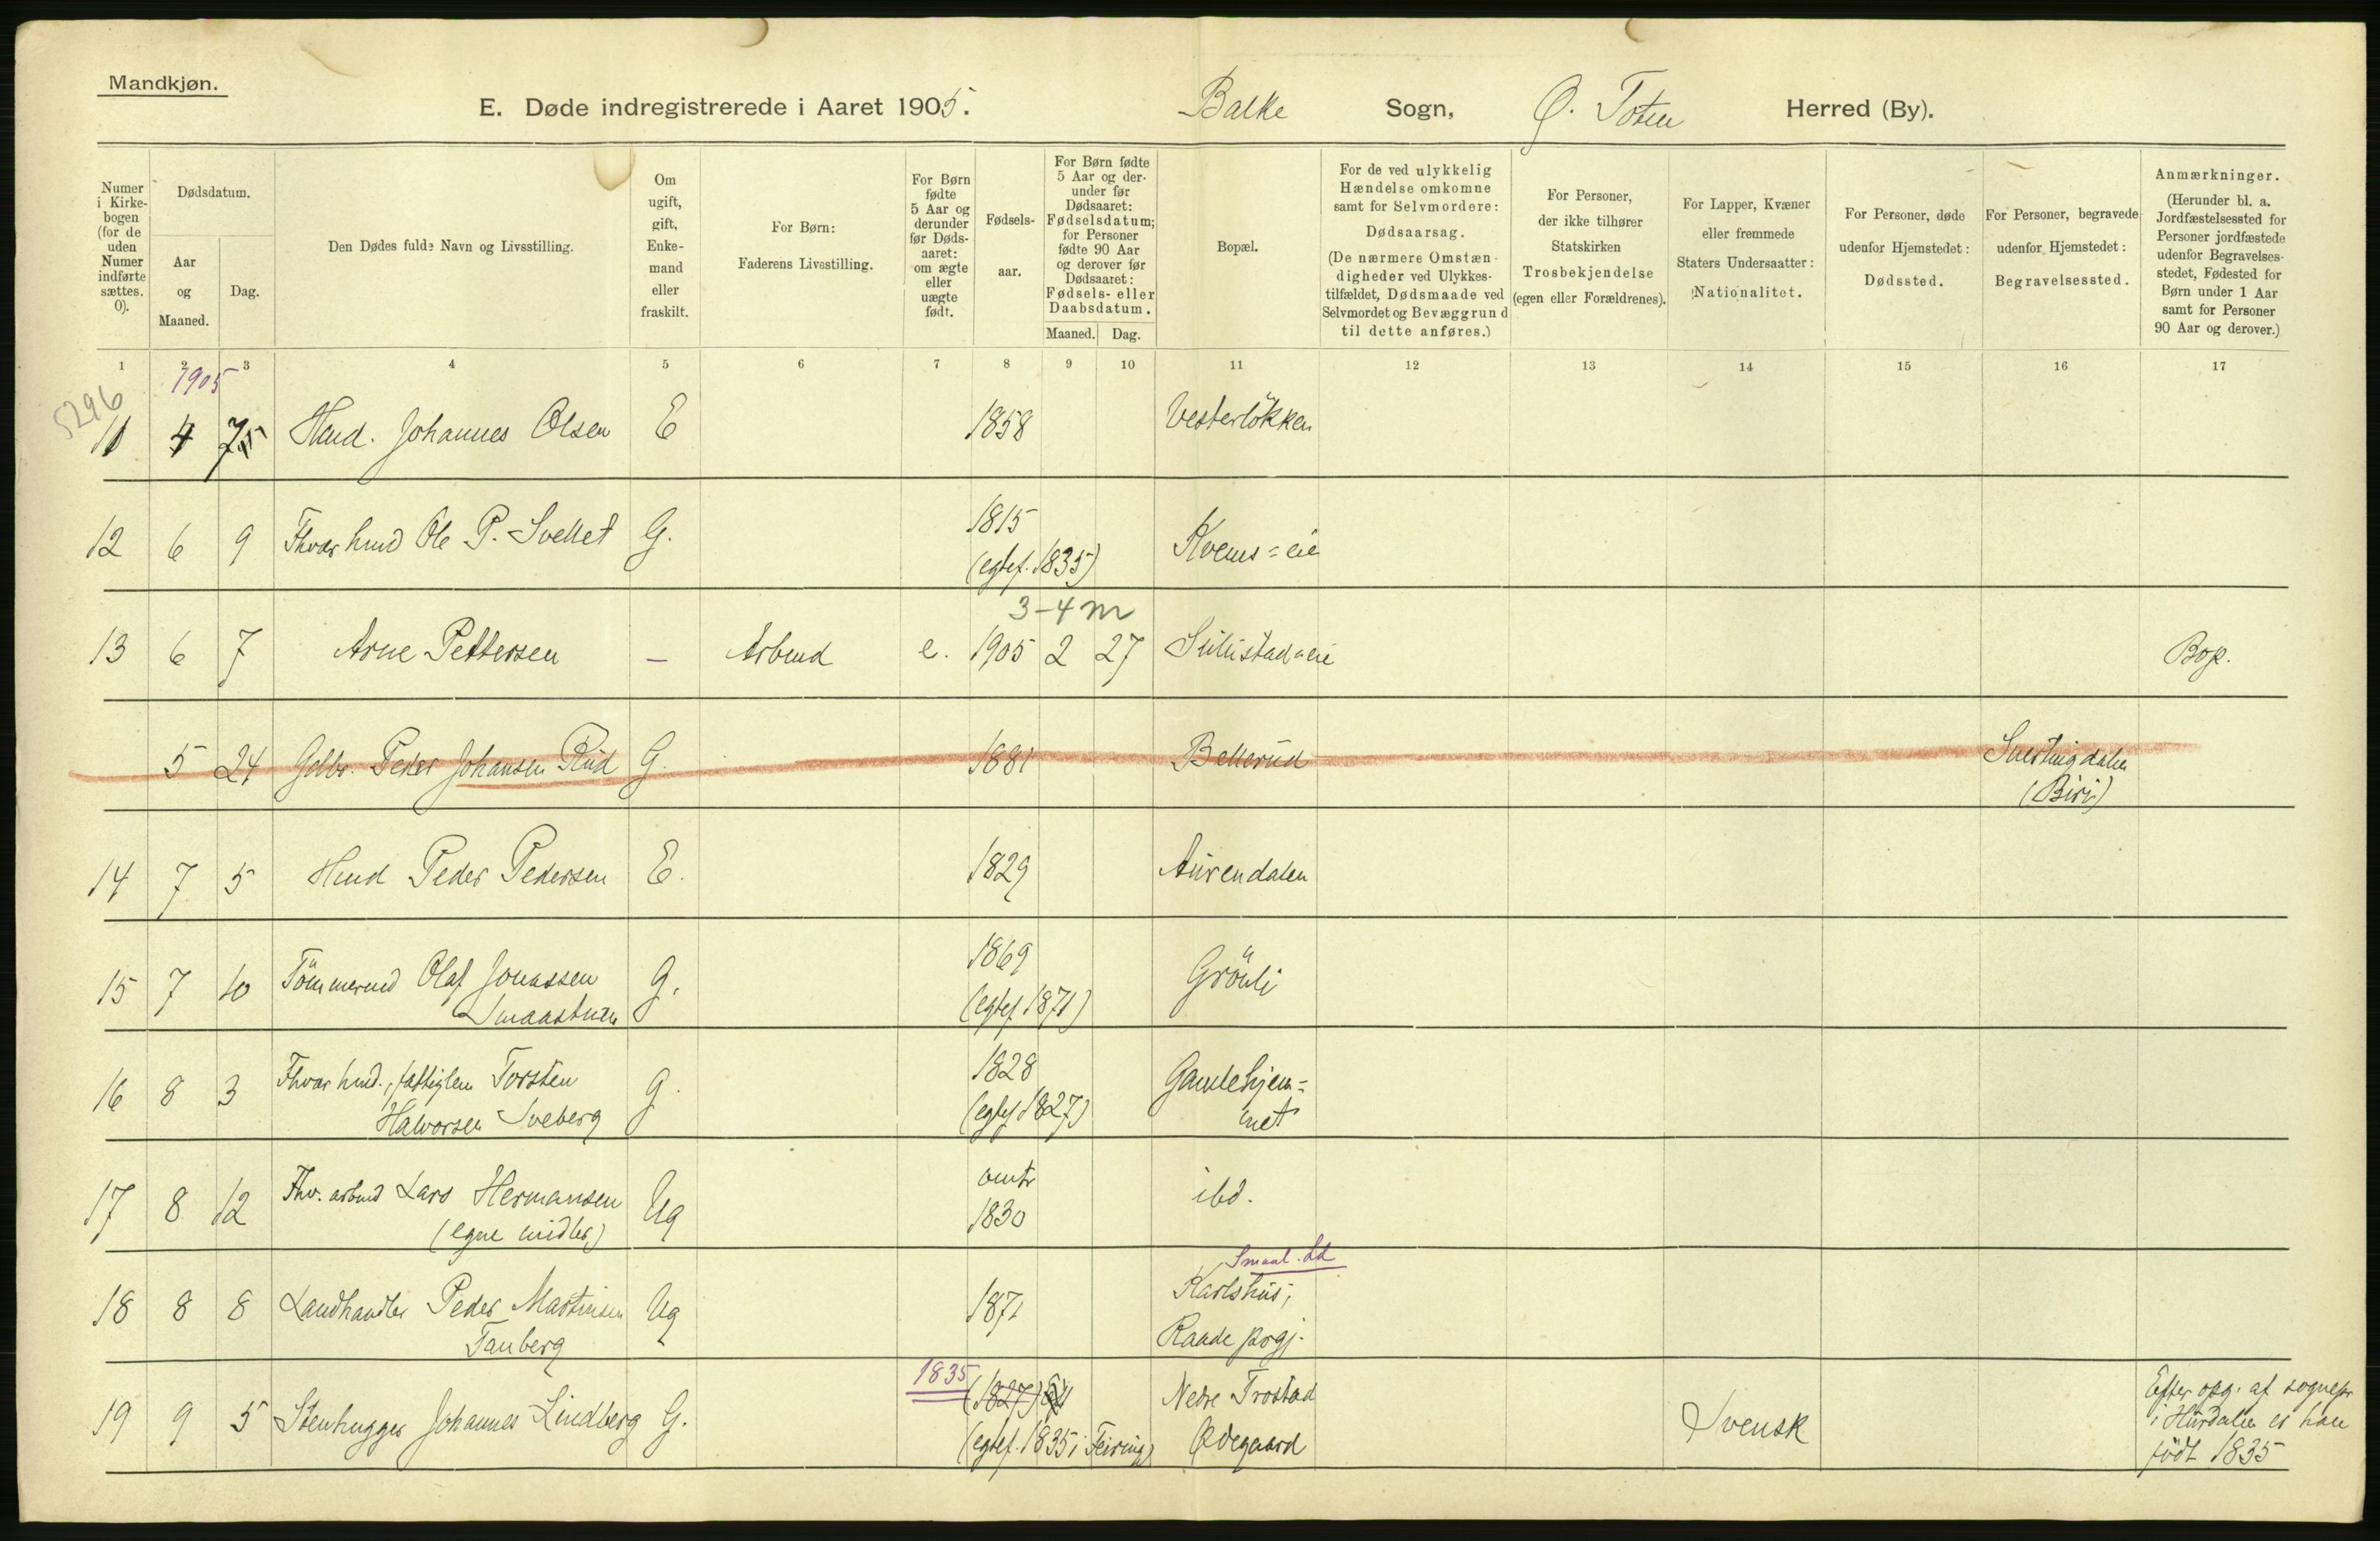 Mandkjøn.
E. Døde indregistrerede i Aaret 1905. Balke Sogn, Ø. Toten Herred (By).
Numer i Kirke-bogen (for de uden Numer indførte sættes. 0).
Dødsdatum.
Aar og Maaned.
Dag.
Den Dødes fulde Navn og Livsstilling.
Om ugift, gift, Enke-mand eller fraskilt.
For Børn: Faderens Livsstilling.
For Børn fødte 5 Aar og derunder før Døds-aaret: om ægte eller uægte født.
Fødsels-aar.
For Børn fødte 5 Aar og der-under før Dødsaaret: Fødselsdatum; for Personer fødte 90 Aar og derover før Dødsaaret: Fødsels- eller Daabsdatum.
Maaned. Dag.
Bopæl.
For de ved ulykkelig Hændelse omkomne samt for Selvmordere: Dødsaarsag. (De nærmere Omstæn-digheder ved Ulykkes-tilfældet, Dødsmaade ved Selvmordet og Bevæggrund til dette anføres.)
For Personer, der ikke tilhører Statskirken Trosbekjendelse (egen eller Forældrenes).
For Lapper, Kvæner eller fremmede Staters Undersaatter: Nationalitet.
For Personer, døde udenfor Hjemstedet: Dødssted.
For Personer, begravede udenfor Hjemstedet: Begravelsessted.
Anmærkninger. (Herunder bl. a. Jordfæstelsessted for Personer jordfæstede udenfor Begravelses-stedet, Fødested for Børn under 1 Aar samt for Personer 90 Aar og derover.)
1 2 3 4 5 6 7 8 9 10 11 12 13 14 15 16 17
5296
1905
11 4 Hmd. Johannes Olsen E 1858 Vesterlökken
12 6 9 Fhvær hmd Ole P. Svellet G. 1815 Kvems=eie
(egtef. 1835)
3-4 m
13 6 7 Arne Pettersen – Arbmd e. 1905 2 27 Sulustad=eie Bop.
5 24 Gdbr. Peder Johansen Rud G. 1881 Bellerud Snertingdalen
(Biri)
14 7 5 Hmd Peder Pedersen E. 1829 Aurendalen
15 7 10 Tömmermd Olaf Jonassen G. 1869 Grönli
Smaastuen (egtef. 1871)
16 8 3 Fhvær hmd., fattiglem Torsten G. 1828 Gamlehjem=
Halvorsen Sveberg (egtef 1827) met
17 8 12 Fhv. arbmd Lars Hermansen Ug omtr 1830 ibd.
(egne midler)
Smaal. Ld
18 8 8 Landhandler Peder Martinsen Ug 1871 Karlshus,
Tanberg Raade prgj.
1835
19 9 5 Stenhugger Johannes Lindberg G. (1827) Nedre Trostad Svensk
(egtef. 1835 i Feiring) Ødegaard
Efter opg. af sognepr
i Hurdalen er han
födt 1835